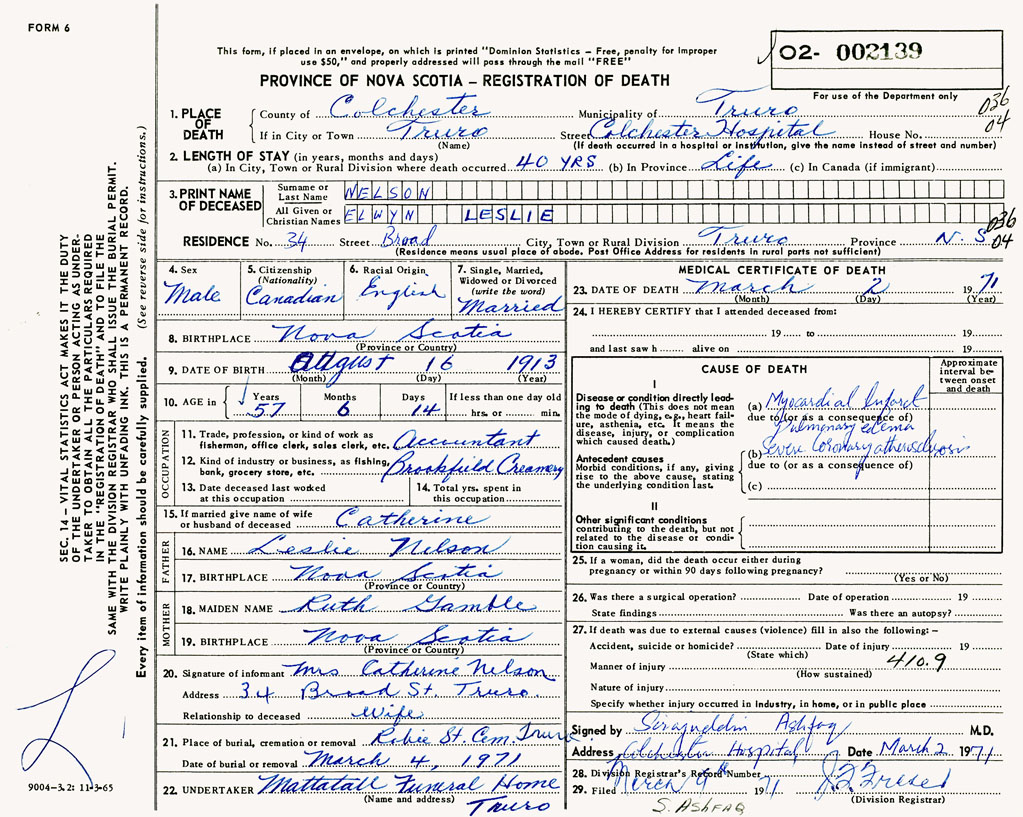 FORM 6
This form, if placed in an envelope, on which is printed "Dominion Statistics – Free, penalty for Improper
use $50," and properly addressed will pass through the mail "FREE"
O2- 002139
PROVINCE OF NOVA SCOTIA – REGISTRATION OF DEATH
For use of the Department only
036
04
1. PLACE OF DEATH
County of Colchester Municipality of Truro
If in City or Town Truro Street Colchester Hospital House No.
(Name) (If death occurred in a hospital or institution, give the name instead of street and number)
2. LENGTH OF STAY (in years, months and days)
(a) In City, Town or Rural Division where death occurred 40 YRS (b) In Province Life (c) In Canada (if immigrant)
3. PRINT NAME OF DECEASED
Surname or Last Name NELSON
All Given or Christian Names ELWYN LESLIE
036
04
RESIDENCE No. 34 Street Broad City, Town or Rural Division Truro Province N.S
(Residence means usual place of abode. Post Office Address for residents in rural parts not sufficient)
4. Sex
Male
5. Citizenship (Nationality)
Canadian
6. Racial Origin
English
7. Single, Married, Widowed or Divorced (write the word)
Married
8. BIRTHPLACE Nova Scotia
(Province or Country)
9. DATE OF BIRTH August 16 1913
(Month) (Day) (Year)
10. AGE in Years Months Days If less than one day old
57 6 14 hrs. or min.
OCCUPATION
11. Trade, profession, or kind of work as
fishermen, office clerk, sales clerk, etc. Accountant
12. Kind of industry or business, as fishing,
bank, grocery store, etc. Brookfield Creamery
13. Date deceased last worked at this occupation
14. Total yrs. spent in this occupation
15. If married give name of wife
or husband of deceased Catherine
FATHER
16. NAME Leslie Nelson
17. BIRTHPLACE Nova Scotia
(Province or Country)
MOTHER
18. MAIDEN NAME Ruth Gamble
19. BIRTHPLACE Nova Scotia
(Province or Country)
20. Signature of informant Mrs Catherine Nelson
Address 34 Broad St. Truro.
Relationship to deceased Wife
21. Place of burial, cremation or removal Robie St. Cem. Truro
Date of burial or removal March 4, 1971
22. UNDERTAKER Mattatall Funeral Home
(Name and address) Truro
MEDICAL CERTIFICATE OF DEATH
23. DATE OF DEATH March 2 1971
(Month) (Day) (Year)
24. I HEREBY CERTIFY that I attended deceased from:
19 to 19
and last saw h alive on 19
CAUSE OF DEATH
Approximate interval between onset and death
I
Disease or condition directly leading
to death (This does not mean
the mode of dying, e.g., heart failure,
asthenia, etc. It means the
disease, injury, or complication
which caused death.)
(a) Myocardial Infarct
due to (or as a consequence of)
Pulmonary edema
Antecedent causes
Morbid conditions, if any, giving
rise to the above cause, stating
the underlying condition last.
(b) Severe Coronary atherosclerosis
due to (or as a consequence of)
(c)
II
Other significant conditions
contributing to the death, but not
related to the disease or condition
causing it.
25. If a woman, did the death occur either during
pregnancy or within 90 days following pregnancy?
(Yes or No)
26. Was there a surgical operation? Date of operation 19
State findings Was there an autopsy?
27. If death was due to external causes (violence) fill in also the following: –
Accident, suicide or homicide? Date of injury 19
(State which)
410.9
Manner of injury
(How sustained)
Nature of injury
Specify whether injury occurred in industry, in home, or in public place
Signed by Sirajuddin Ashfaq M.D.
Address Colchester Hospital Date March 2 1971
28. Division Registrar's Record Number
29. Filed March 9th 1971
(Division Registrar)
S. ASHFAQ
SEC. 14 – VITAL STATISTICS ACT MAKES IT THE DUTY
OF THE UNDERTAKER OR PERSON ACTING AS UNDERTAKER
TO OBTAIN ALL THE PARTICULARS REQUIRED
IN THE "REGISTRATION OF DEATH" AND TO FILE THE
SAME WITH THE DIVISION REGISTRAR WHO SHALL ISSUE THE BURIAL PERMIT.
WRITE PLAINLY WITH UNFADING INK. THIS IS A PERMANENT RECORD.
Every item of information should be carefully supplied. (See reverse side for instructions.)
9004-3.2: 11-3-65